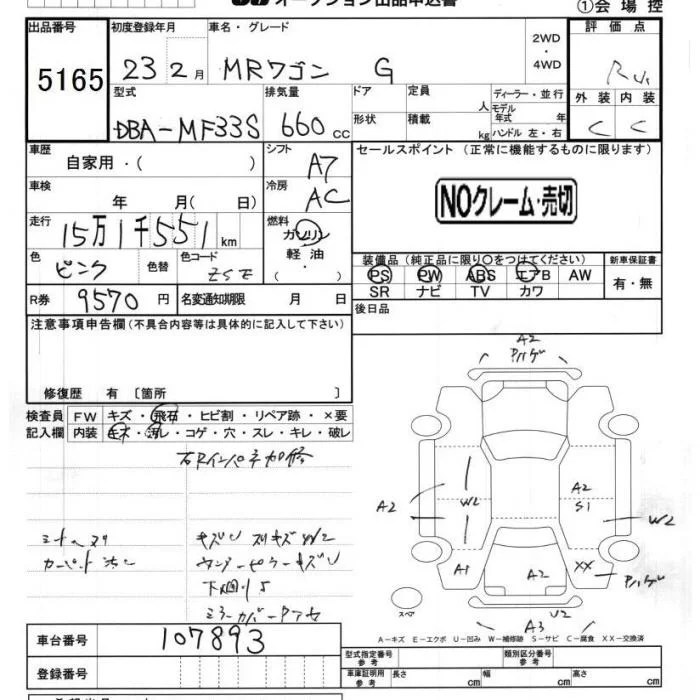 オークション出品申込書
①会場控
出品番号
5165
初度登録年月
23 2月
車名・グレード
MRワゴン G
2WD
・
4WD
評価点
R
型式
DBA-MF33S
排気量
660 cc
ドア
形状
定員
人
積載
kg
ディーラー・並行
モデル年式
年
ハンドル 左・右
外装 内装
C C
車歴
自家用・( )
シフト
A7
セールスポイント (正常に機能するものに限ります)
NOクレーム・売切
車検
年 月( 日)
冷房
AC
走行
15万1千551km
燃料
ガソリン
軽油
( ・ )
色
ピンク
色替
色コード
ZSE
装備品 (純正品に限り○をつけてください)
PS PW ABS エアB AW
SR ナビ TV カワ
新車保証書
有・無
R券
9570円
名変通知期限
月 日
後日品
注意事項申告欄(不具合内容等は具体的に記入して下さい)
修復歴 有 〔箇所 〕
検査員
記入欄
FW キズ・飛石・ヒビ割・リペア跡・×要
内装 キズ・汚レ・コゲ・穴・スレ・キレ・破レ
右Rインパネ加修
キズU スリキズW2
下回リS
A2
ハゲ
A2
W2
A2
S1
W2
A1
A2
XX
ハゲ
U2
A3
スペア
A-キズ E-エクボ U-凹み W-補修跡 S-サビ C-腐食 XX-交換済
車台番号
107893
登録番号
型式指定番号
参考
類別区分番号
参考
車庫証明用
参考
長さ
cm
幅
cm
高さ
cm